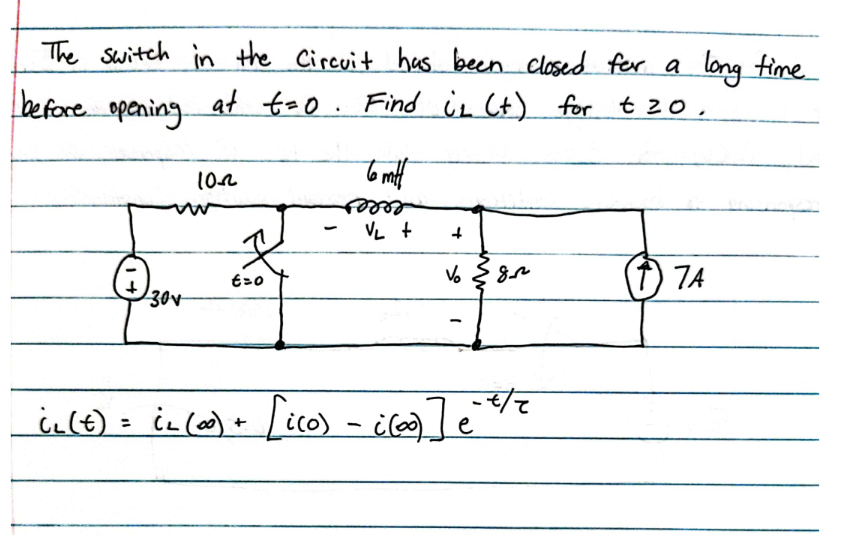 The switch in the circuit has been closed for a long time
before opening at t=0. Find iL(t) for t≥0.
10Ω
6mH
- VL +
+
-
+
30V
t=0
Vo
8Ω
7A
-
iL(t) = iL(∞) + [i(0) - i(∞)] e^-t/τ